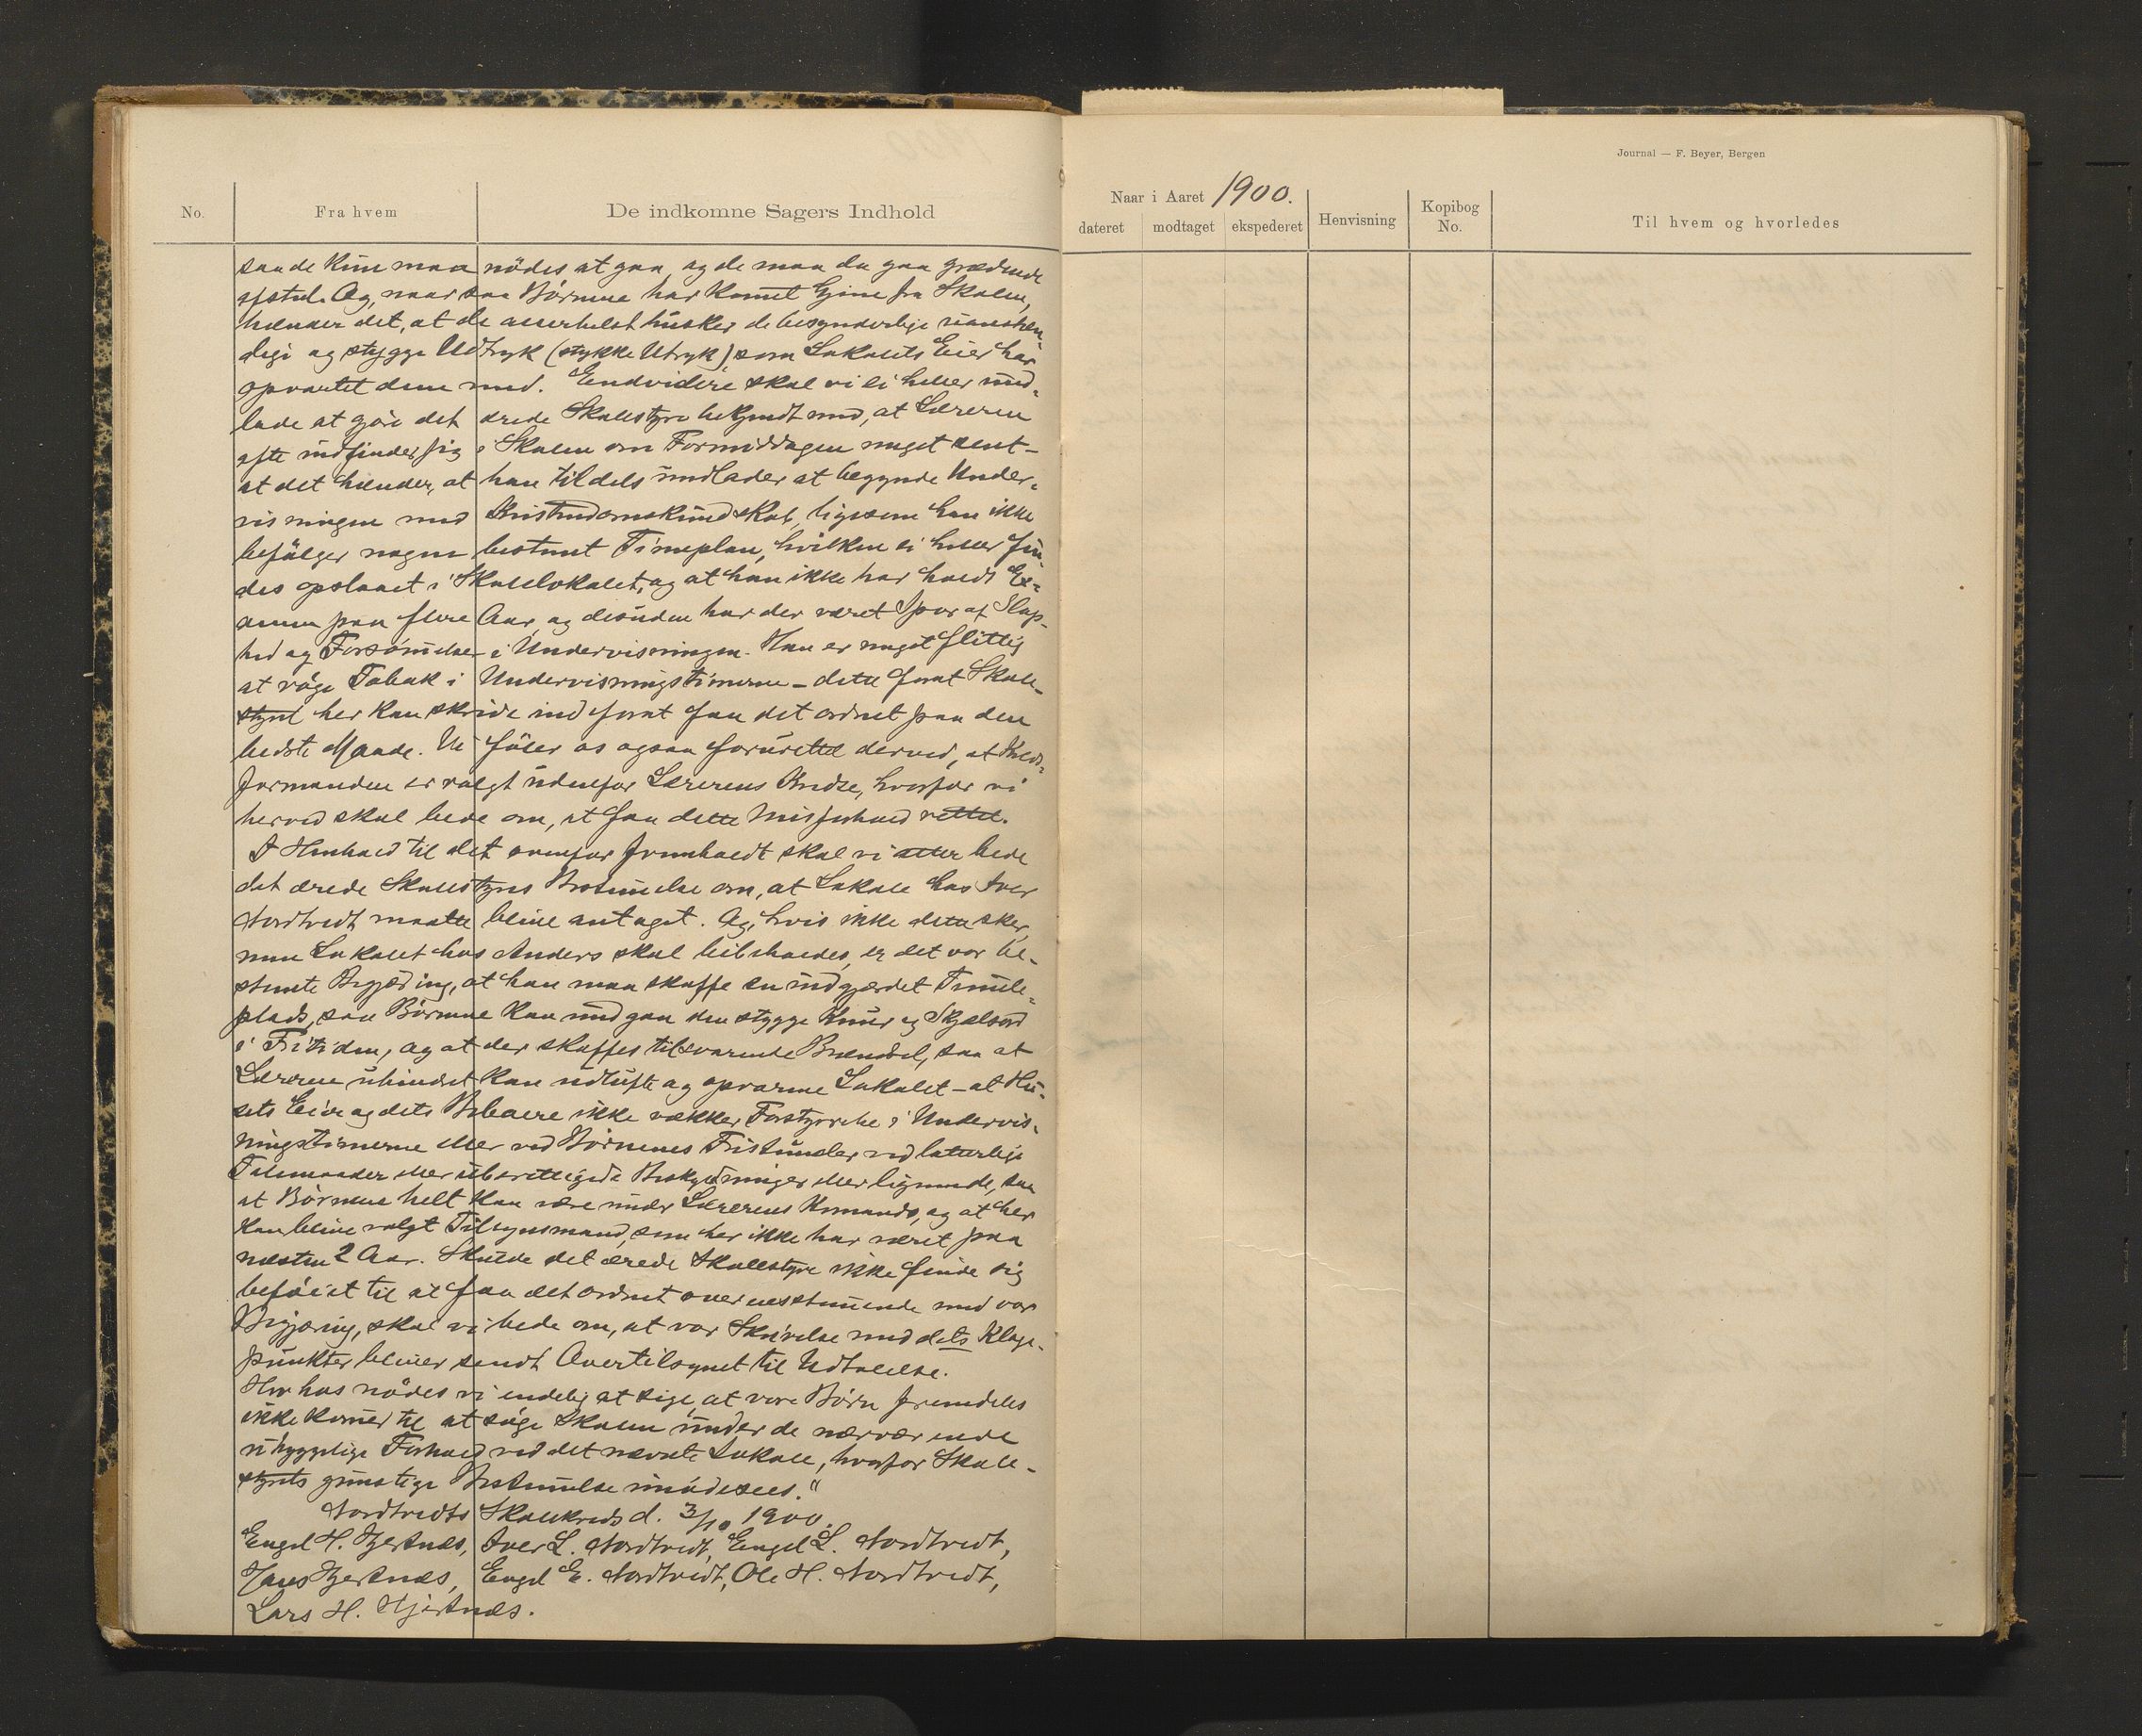 Journal — F. Beyer, Bergen
No.
Fra hvem
De indkomne Sagers Indhold
Naar i Aaret 1900.
dateret
modtaget
ekspederet
Henvisning
Kopibog
No.
Til hvem og hvorledes
saa de kun maa nødes at gaa, og de maa da gaa grædende
afsted. Og, naar saa Børnene har komet hjem fra Skolen,
hænder det, at de allerhelst husker de besynderlige uanstæn-
dige og stygge Udtryk (stykke Utryk), som Lokalets Eier har
opvartet dem med. Endvidere skal vi ei heller und-
lade at gjøre det ærede Skolestyre bekjendt med, at Læreren
ofte indfinder sig i Skolen om Formiddagen meget sent –
at det hænder, at han tildels undlader at begynde Under-
visningen med Kristendomskundskab, ligesom han ikke
befølger nogen bestemt Timeplan, hvilken ei heller fin-
des opslaaet i Skolelokalet, og at han ikke har holdt Ex-
amen paa flere Aar, og desuden har der været Spor af Slap-
hed og Forsømmelse i Undervisningen. Han er meget flittig
at røge Tobak i Undervisningstimerne – dette foråt Skole-
styret her kan skride ind foråt faa det ordnet paa den
bedste Maade. Vi føler os ogsaa forurettet derved, at Kreds-
formanden er valgt udenfor Lærerens Kredse, hvorfor vi
herved skal bede om, at faa dette Misforhold rettet.
I Henhold til det ovenfor fremholdt skal vi atter bede
det ærede Skolestyres Bestemmelse om, at Lokale hos Iver
Nordtvedt maatte blive antaget. Og, hvis ikke dette sker,
men Lokalet hos Anders skal beibeholdes, er det vor be-
stemte Begjæring, at han maa skaffe en indgjærdet Tumle-
plads, saa Børnene kan undgaa den stygge Knur og Skjælsord
i Fritiden, og at der skaffes tilsvarende Brændsel, saa at
Læreren uhindret kan udlufte og opvarme Lokalet – at Hu-
sets Eier og dets Beboere ikke vækker Forstyrrelse i Undervis-
ningstimerne eller ved Børnenes Fristunder ved latterlige
Talemaader eller uberettigede Beskyldninger eller lignende, saa
at Børnene helt kan være under Lærerens Komando, og at her
kan blive valgt Tilsynsmand, som her ikke har været paa
næsten 2 Aar. Skulde det ærede Skolestyre ikke finde sig
beføiet til at faa det ordnet overensstemmende med vor
Begjæring, skal vi bede om, at vor Skrivelse med dets Klage-
punkter bliver sendt Overtilsynet til Udtalelse.
Hvorhos nødes vi endelig at sige, at vore Børn fremdeles
ikke komer til at søge Skolen under de nærværende
uhyggelige Forhold ved det nævnte Lokale, hvorfor Skole-
styrets gunstige Bestemmelse imødesees."
Nordtvedts Skolekreds d. 3/10 1900.
Engel H. Hjertnes, Iver L. Nordtvedt, Engel L. Nordtvedt,
Hans Hjertnes, Engel E. Nordtvedt, Ole H. Nordtvedt,
Lars H. Hjertnes.